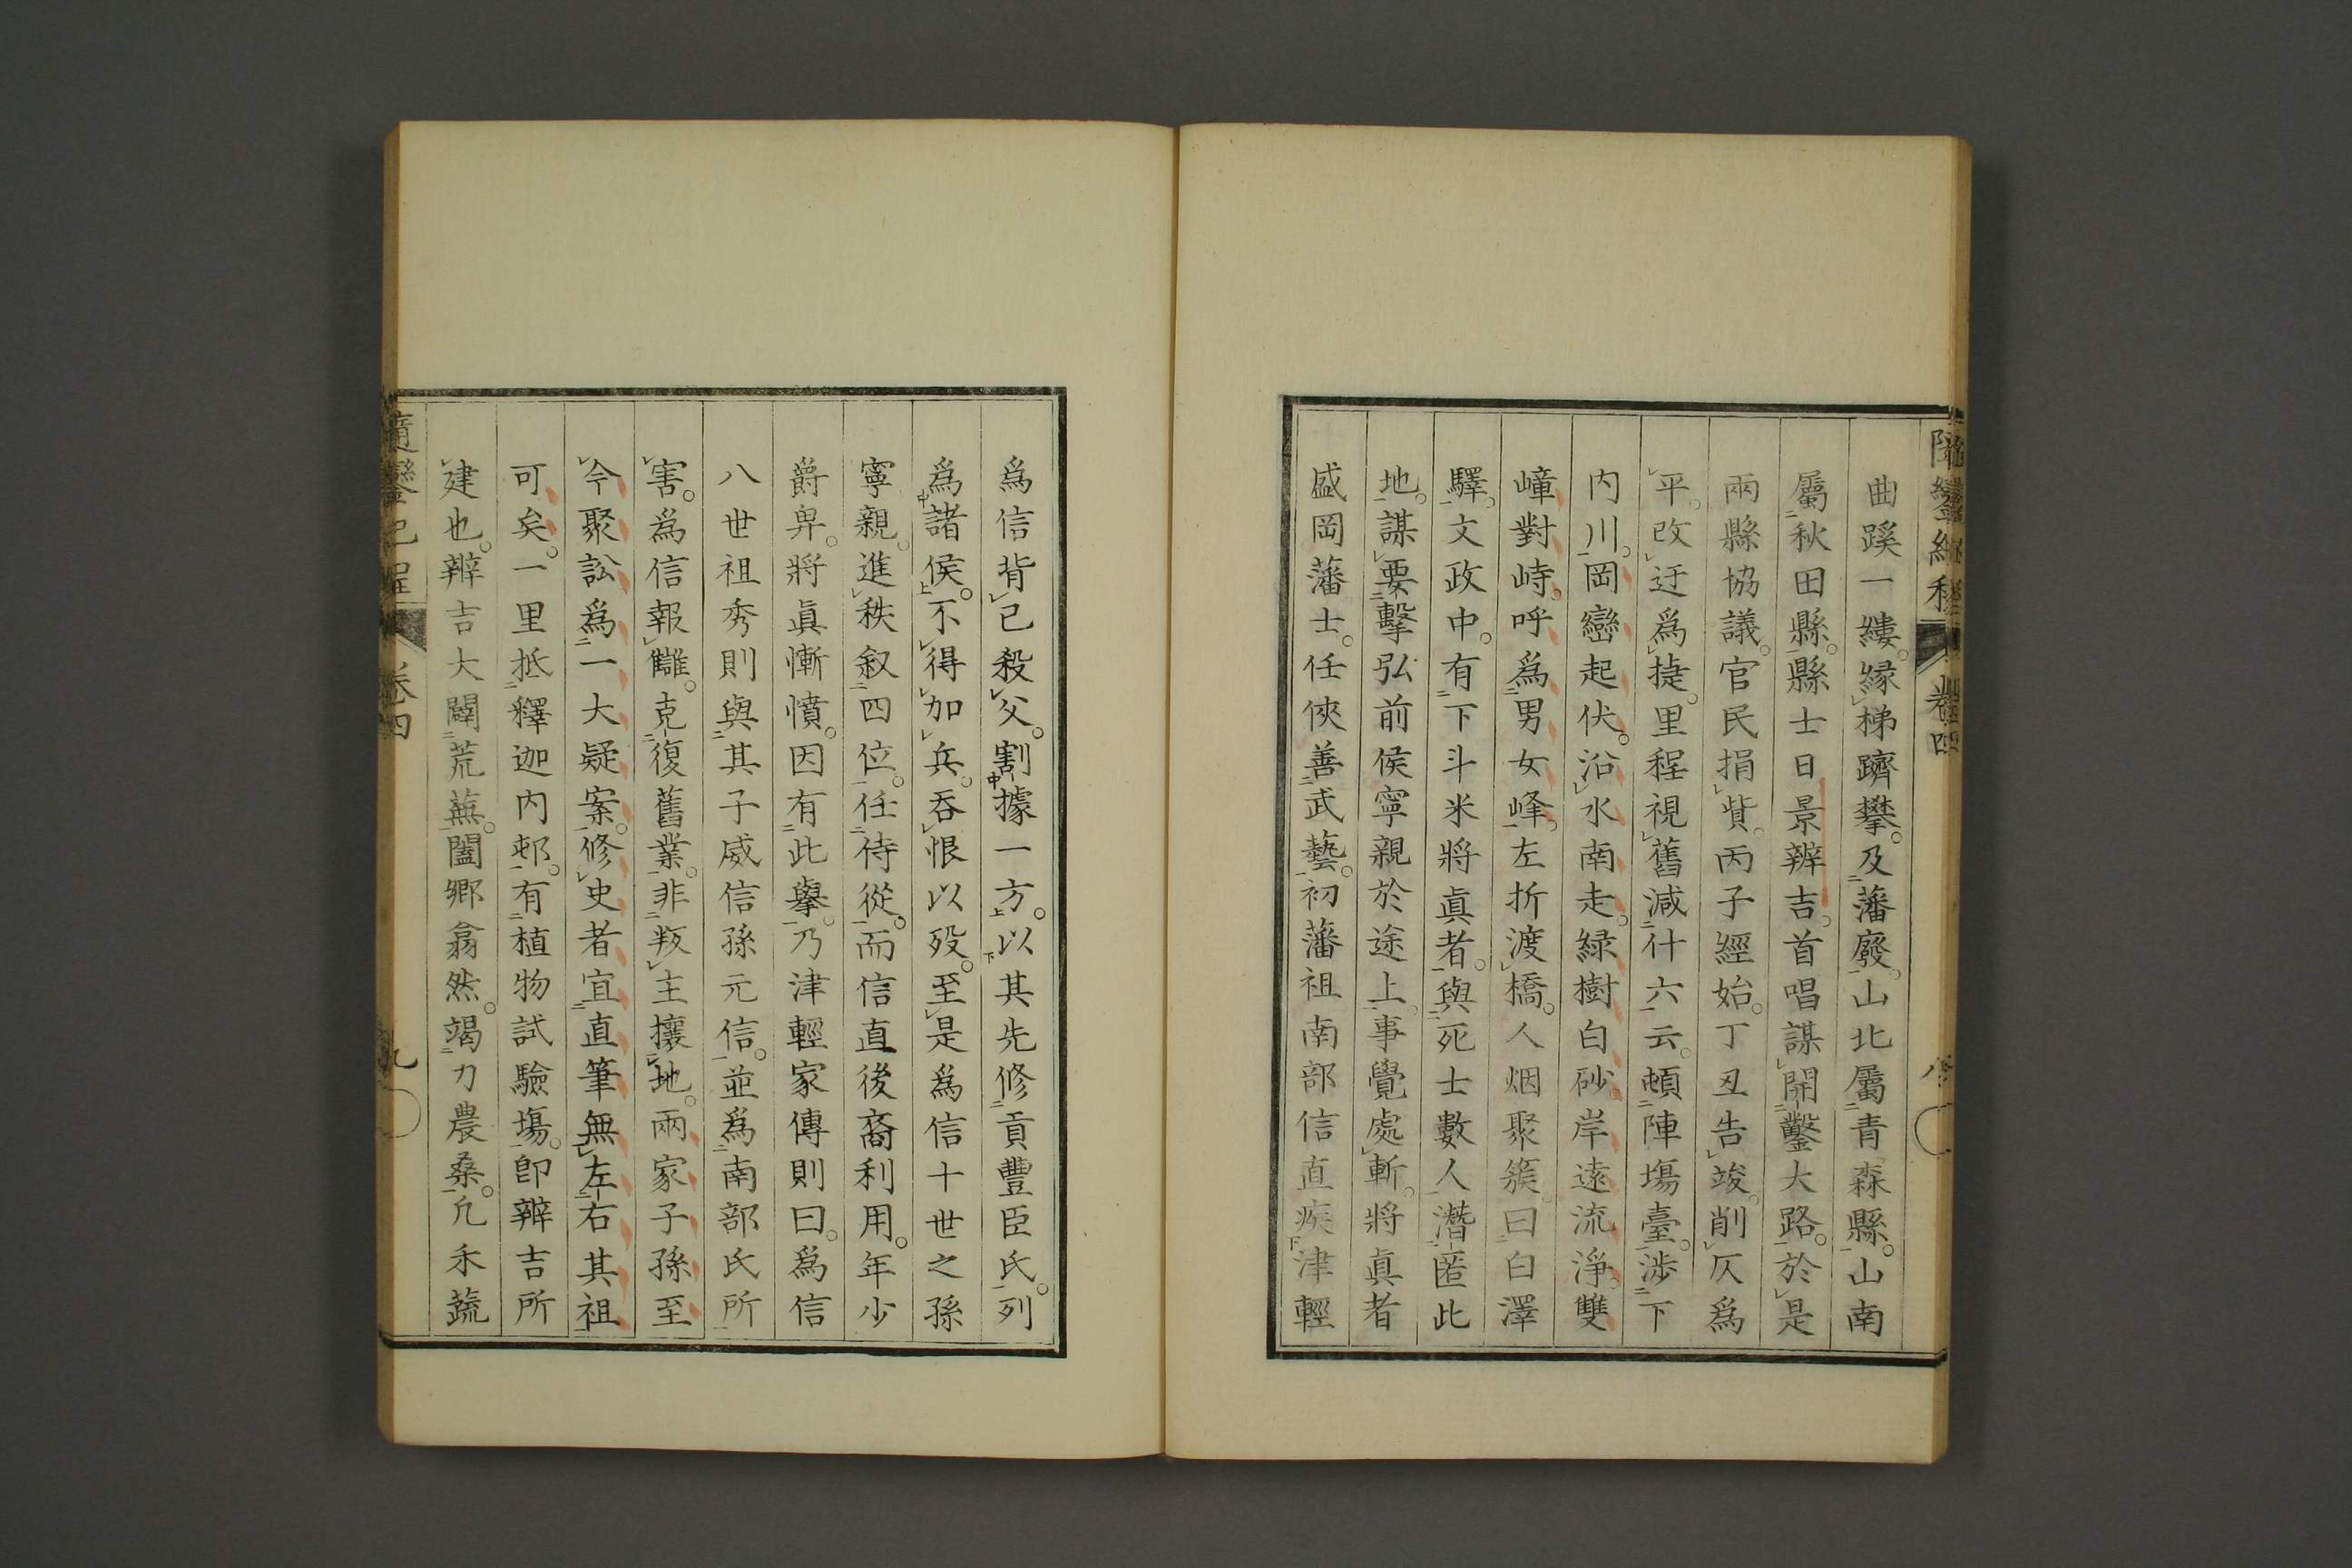 曲蹊一縷。縁梯躋攀。及藩廢。山北屬青森縣。山南
屬秋田縣。縣士日景辨吉。首唱謀開鑿大路。於是
兩縣協議。官民捐貲。丙子經始。丁丑告竣。削仄爲
平。改迂爲捷。里程視舊減什六云。頓陣塲臺。渉下
内川。岡巒起伏。沿水南走。緑樹白砂。岸遠流淨。雙
嶂對峙。呼爲男女峰。左折渡橋。人烟聚簇。曰白澤
驛。文政中。有下斗米將眞者。與死士數人。潛匿此
地。謀要擊弘前侯寧親於途上。事覺處斬。將眞者
盛岡藩士。任俠善武藝。初藩祖南部信直疾津輕
爲信背己殺父。割據一方。以其先修貢豐臣氏。列
爲諸侯。不得加兵。呑恨以歿。至是爲信十世之孫
寧親。進秩叙四位。任侍從。而信直後裔利用。年少
爵卑。將眞慚憤。因有此擧。乃津輕家傳則曰。爲信
八世祖秀則與其子威信孫元信。並爲南部氏所
害。爲信報讎。克復舊業。非叛主攘地。兩家子孫至
今聚訟爲一大疑案。修史者宜直筆無左右其祖
可矣。一里抵釋迦内邨。有植物試驗塲。卽辨吉所
建也。辨吉大闢荒蕪。闔郷翕然。竭力農桑。凢禾蔬